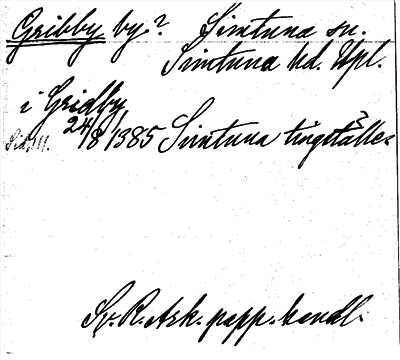 Gribby by? Simtuna sn.
Simtuna hd. Upl.
i Gridby
24/8 1385 Simtuna tingställe
Sv. R. Ark. papp. handl.